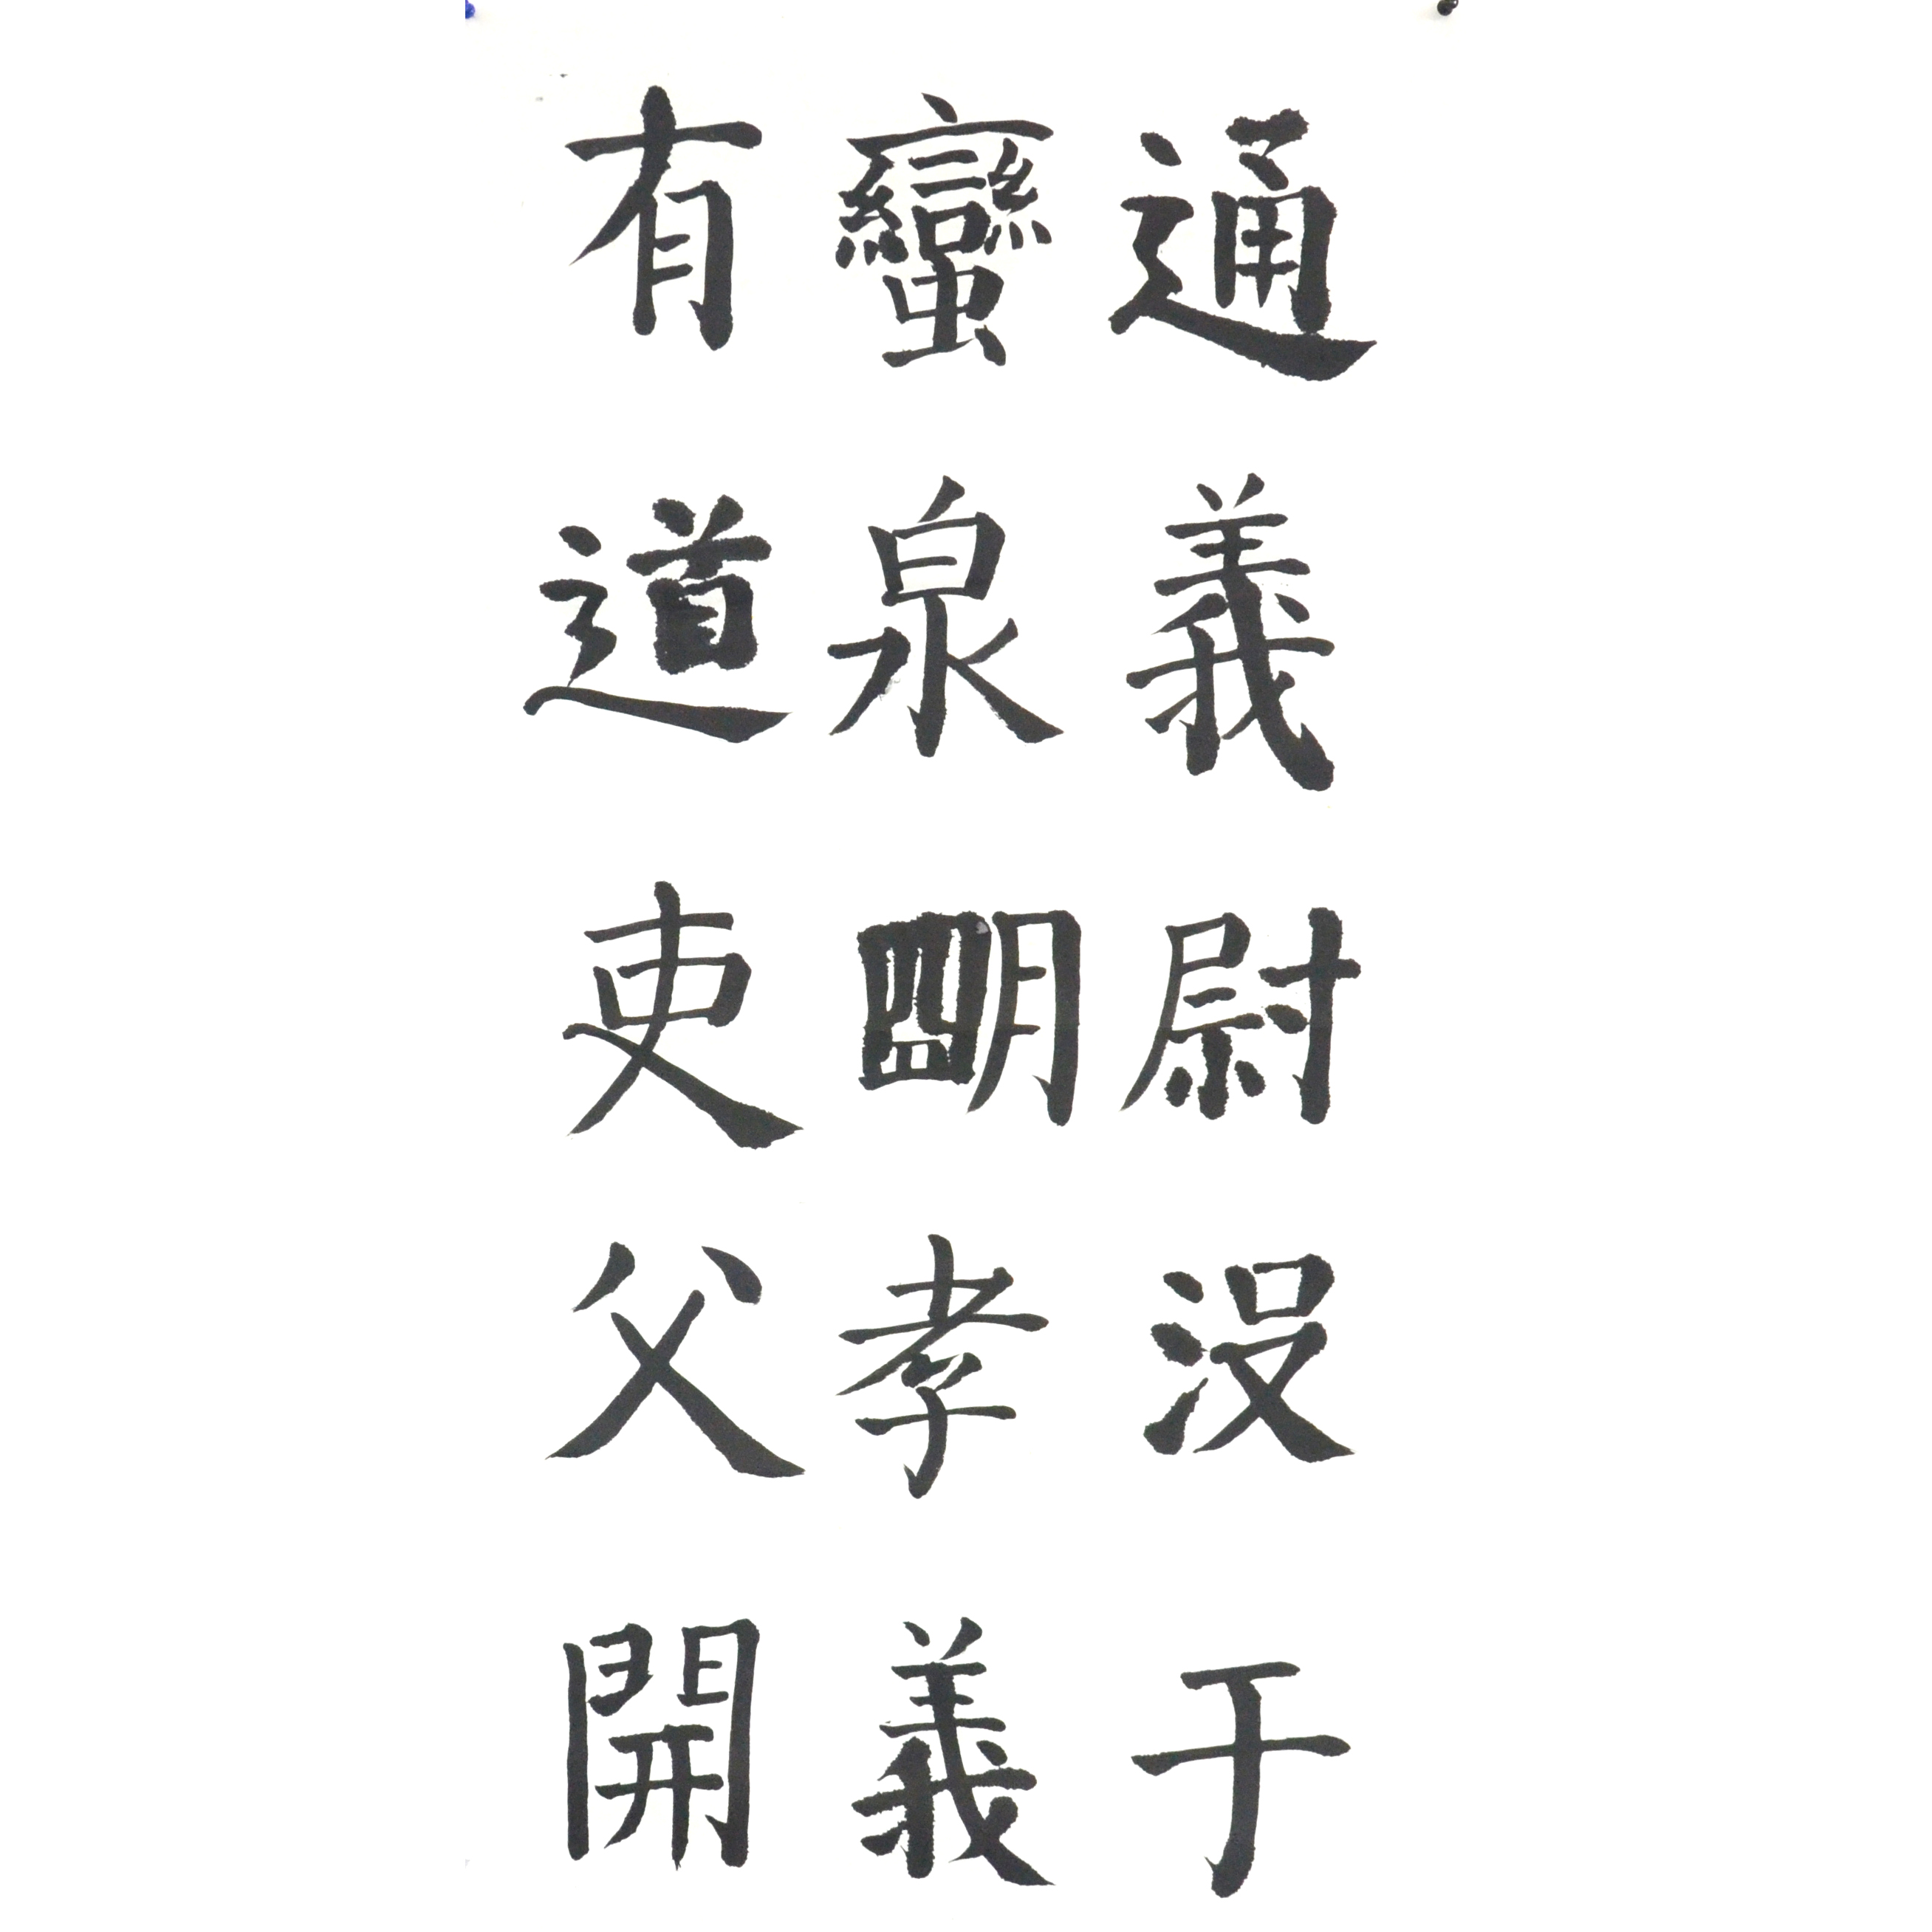 通義尉没于
蠻泉明孝義
有道吏父開